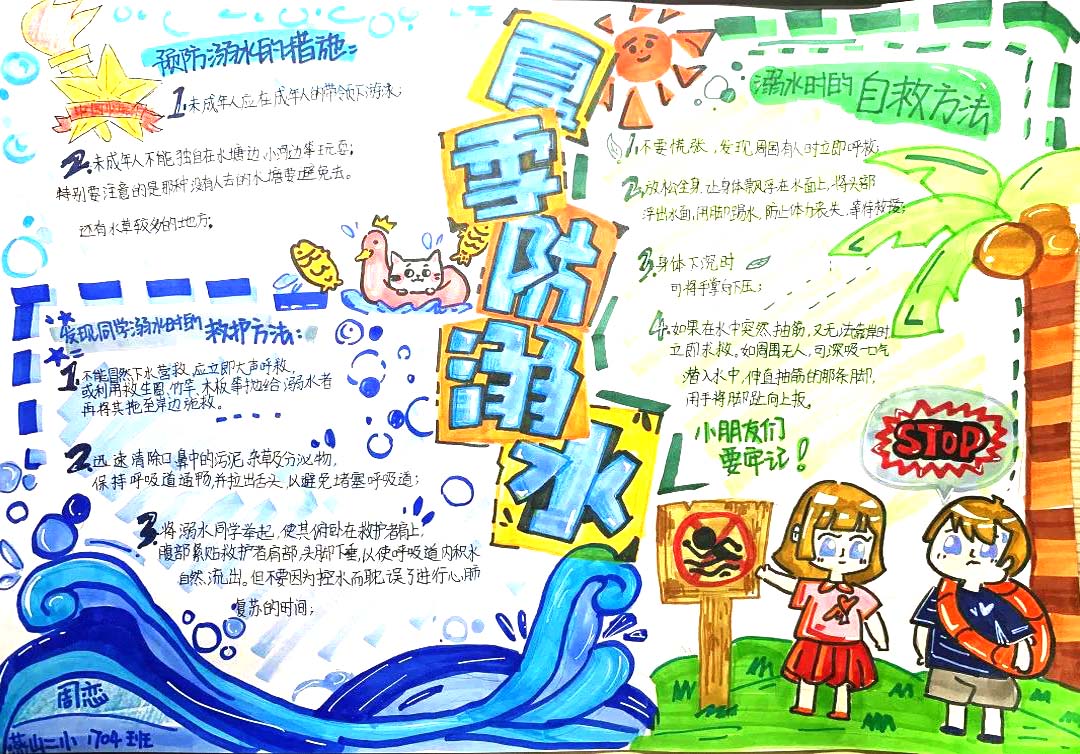 预防溺水的措施:
1.未成年人应在成年人的带领下游泳;
2.未成年人不能独自在水塘边、小河边等玩耍;
特别要注意的是那种没有人去的水塘要避免去。
还有水草较多的地方。
发现同学溺水时的救护方法:
1.不能冒然下水营救,应立即大声呼救,
或利用救生圈、竹竿、木板等抛给溺水者
再将其拖至岸边施救。
2.迅速清除口鼻中的污泥、杂草及分泌物,
保持呼吸道通畅,并拉出舌头,以避免堵塞呼吸道;
3.将溺水同学举起,使其俯卧在救护者肩上,
腹部紧贴救护者肩部,头脚下垂,以使呼吸道内积水
自然流出。但不要因为控水而耽误了进行心肺
复苏的时间;
周恋
燕山二小 1704班
夏季防溺水
溺水时的自救方法
1.不要慌张,发现周围有人时立即呼救;
2.放松全身,让身体飘浮在水面上,将头部
浮出水面,用脚踢水,防止体力丧失,等待救援;
3.身体下沉时
可将手掌向下压;
4.如果在水中突然抽筋,又无法靠岸时
立即求救。如周围无人,可深吸一口气
潜入水中,伸直抽筋的那条脚,
用手将脚趾向上扳。
小朋友们
要牢记!
STOP